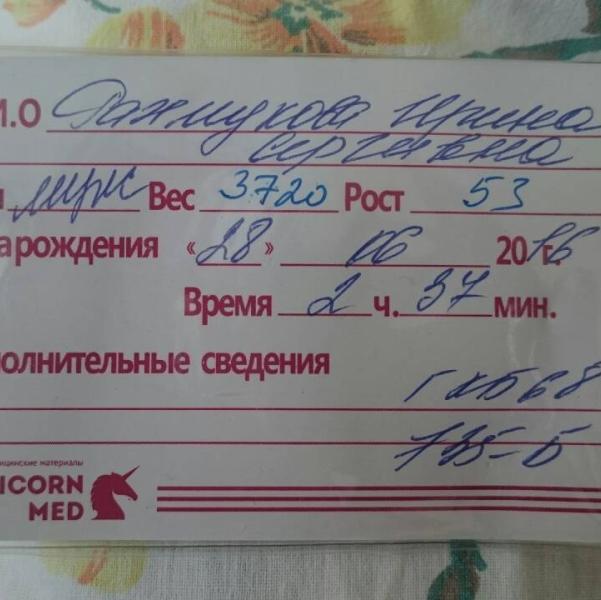 И.О Рахмукова Ирина
Сергеевна
л мужс Вес 3720 Рост 53
а рождения «28» 06 2016 г.
Время 2 ч. 37 мин.
полнительные сведения
ГКБ68
735-Б
ицинские материалы
ICORN
MED